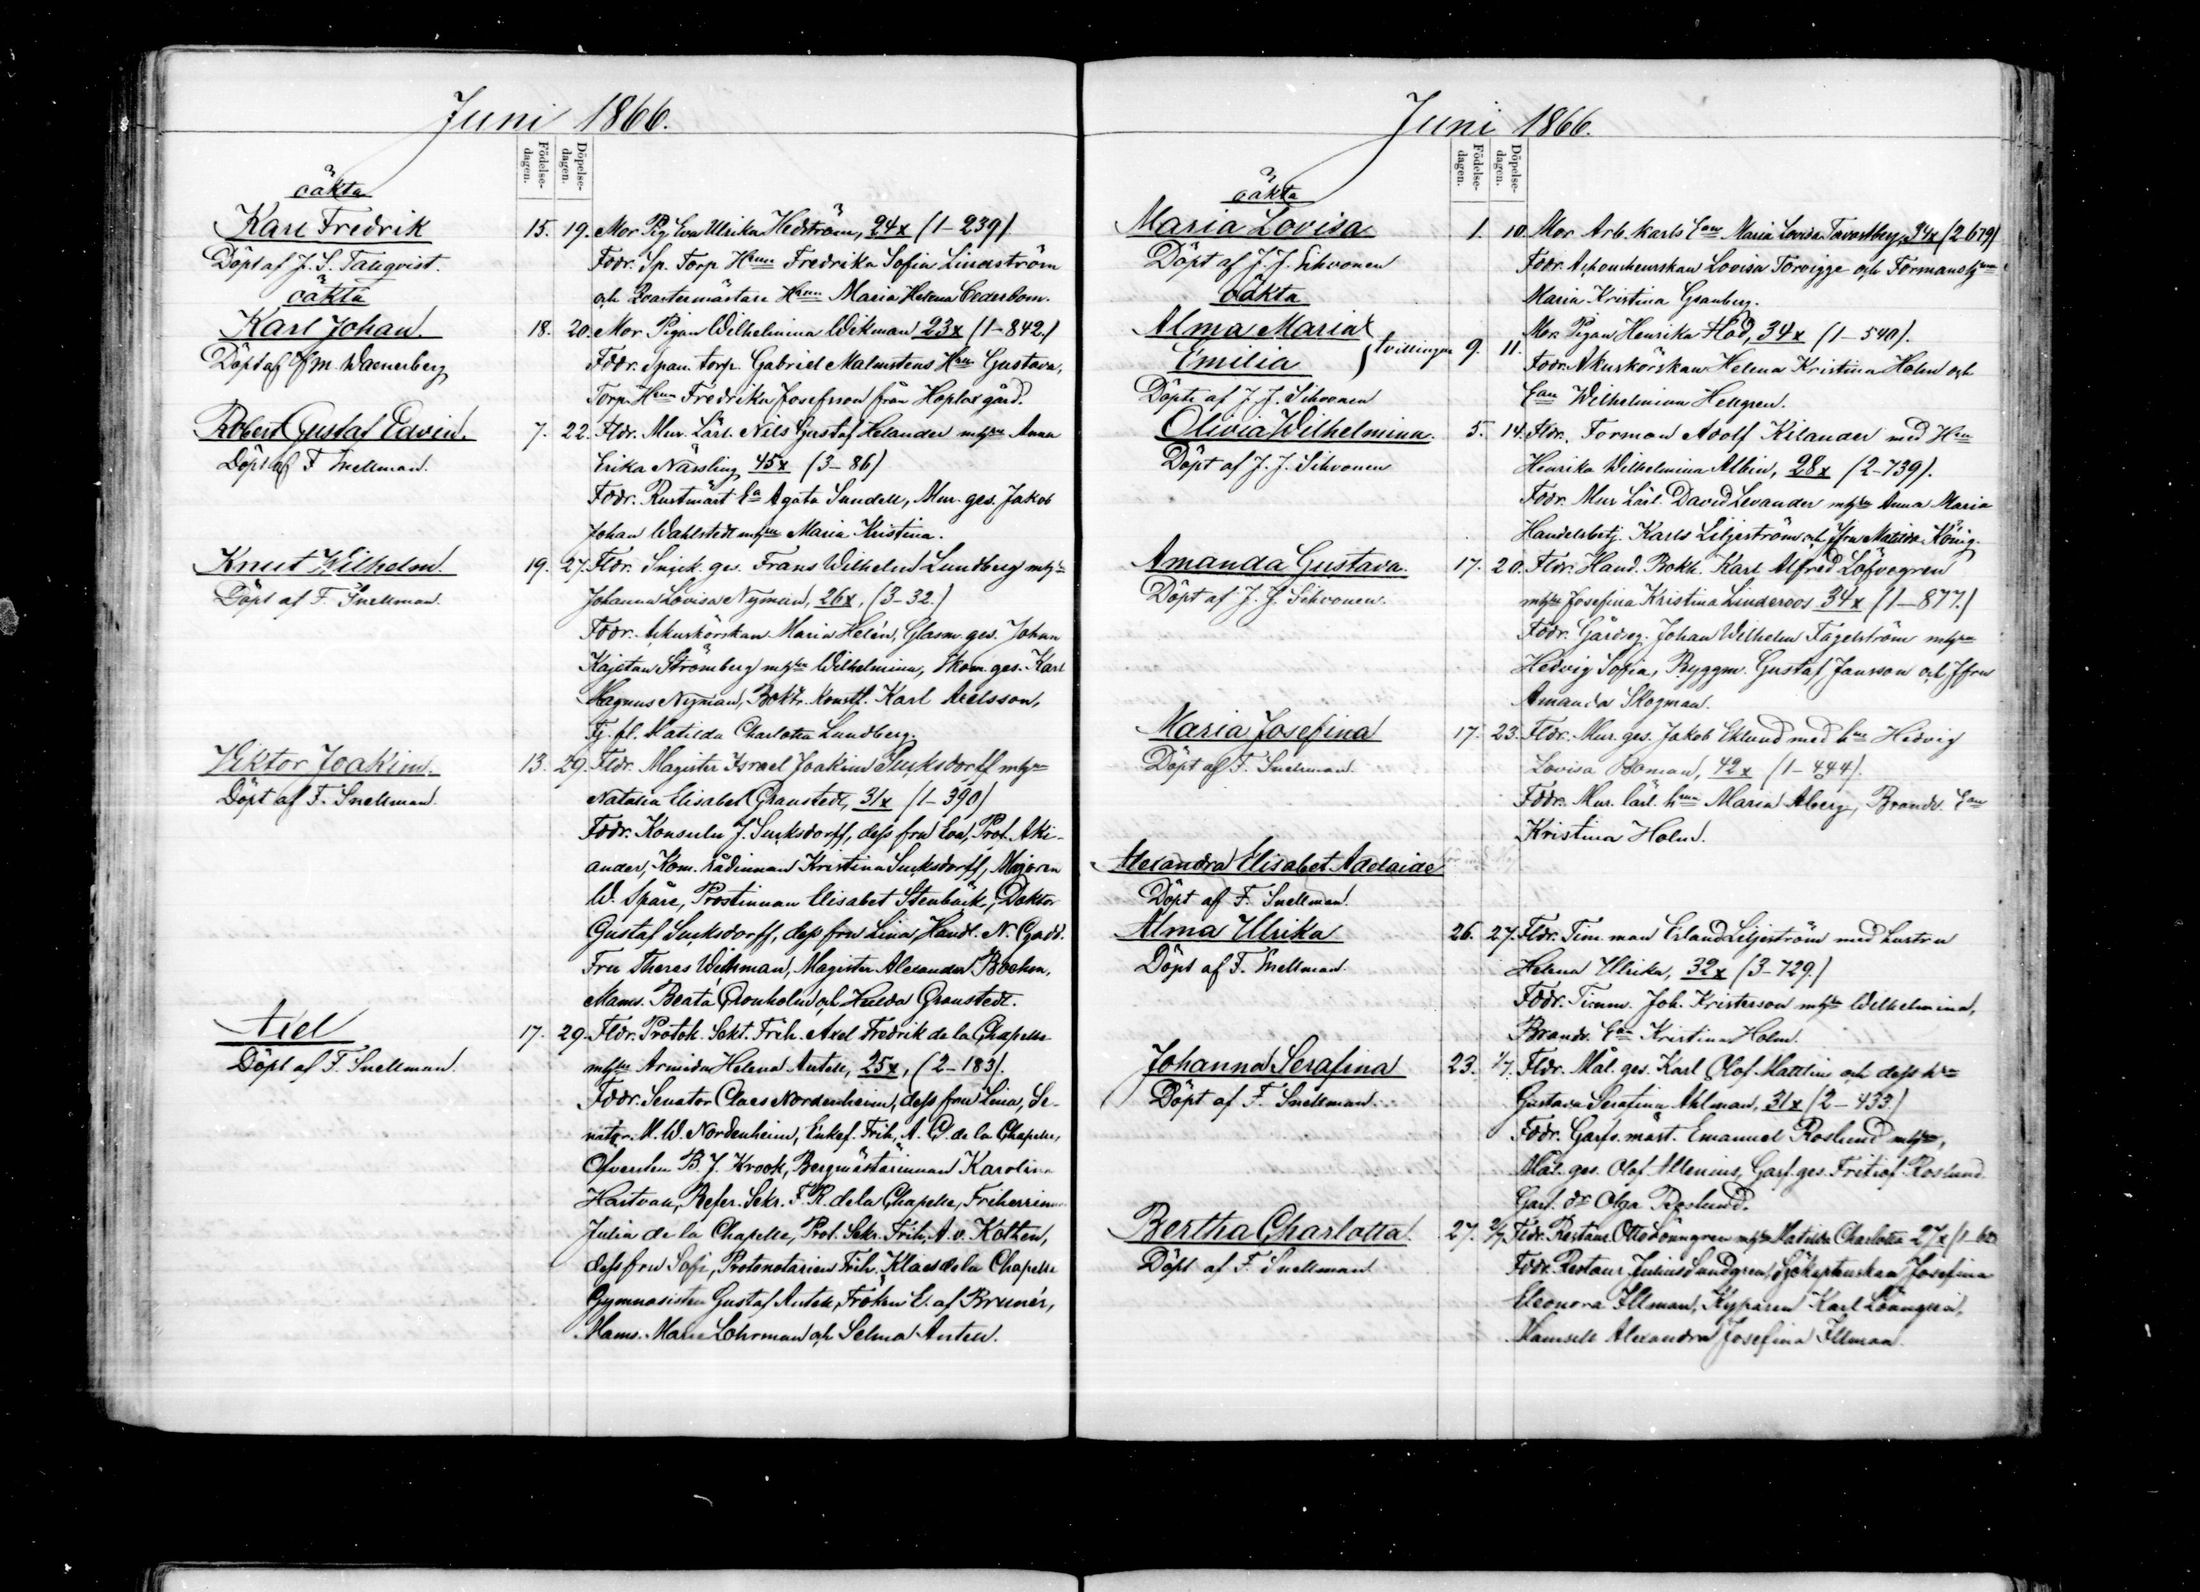 Juni 1866.
Födelse-dagen. Döpelse-dagen.
oäkta
Karl Fredrik 15. 19. Mor Pig. Eva Ulrika Hedström, 24x (1-239)
Döpt af J. S. Talqvist. Fddr. Sp. Torp. Hrun Fredrika Sofia Lindström
oäkta och Qvartermästare Hrun Maria Helena Cederbom.
Karl Johan. 18. 20. Mor Pigan Wilhelmina Wikman 23x (1-842.)
Döpt af Waenerberg Fddr. Span. torp. Gabriel Malmstens Hru Gustava,
Torp. Hrun Fredrika Josefsson från Hoplax gård.
Robert Gustaf Edvin. 7. 22. Fldr. Mur. Lärl. Nils Gustaf Helander mhru Anna
Döpt af F Snellman. Erika Nässling 45x (3-86)
Fddr. Rustmäst Ea Agata Sundell, Mur. ges. Jakob
Johan Wahlstedt mhru Maria Kristina.
Knut Wilhelm. 19. 27. Fldr. Snick. ges. Frans Wilhelm Lundberg mhru
Döpt af F. Snellman. Johanna Lovisa Nyman, 26x, (3-32.)
Fddr. Akuskörskan Maria Helén, Glasm. ges. Johan
Kajetan Strömberg mhru Wilhelmina, Skom. ges. Karl
Magnus Nyman, Bokh. Karl Axelsson,
Tj. fl. Matilda Charlotta Lundberg.
Viktor Joakim. 13. 29. Fldr. Magister Israel Joakim Sucksdorff mhru
Döpt af F. Snellman. Natalia Elisabet Granstedt, 31x (1-390)
Fddr. Konsuln J. Sucksdorff, dess fru Eva, Prof. Aki-
ander, Kom. rådinnan Kristina Sucksdorff, Majoren
W. Spåre, Prostinnan Elisabet Stenbäck, Doktor
Gustaf Sucksdorff, dess fru Lina, Handl. N.
Fru Theres Wikman, Magister Alexander Boehm,
Mams. Beata Gronholm och Hulda Granstedt.
Axel 17. 29. Fldr. Protok. Sekt. Frih. Axel Fredrik de la Chapelle
Döpt af F. Snellman. mhru Armida Helena Antell, 25x, (2-183).
Fddr. Senator Claes Nordenheim, dess fru Lina, Se-
nator. Nordenheim, Enkef. Frih. A. G. de la Chapelle,
Öfversten B. J. Krook, Bergmästarinnan Karolina
Hartvall, Refer. Sekr. F. R. de la Chapelle, Friherrinnan
Julia de la Chapelle, Prot. Sekr. Frih. A. v. Kothen,
dess fru Sofi, Protonotarien Frih. Klaes de la Chapelle
Gymnasisten Gustaf Antell, Fröken E. af Brunér,
Mams. Marie Lohrman och Selma Antell.
Juni 1866.
Födelse-dagen. Döpelse-dagen.
oäkta
Maria Lovisa 1. 10. Mor Arb. karls Ean Maria Lovisa Tavastberg, 34x (2-679)
Döpt af J. J. Sihvonen Fddr. Lovisa Torvigge och Formans hrun
oäkta Maria Kristina Granberg.
Alma Maria Mor. Pigan Henrika Flod, 34x (1-540).
Emilia } tvillingar 9. 11. Fddr. Akuskörskan Helena Kristina Holm och
Döpte af J. J. Sihvonen Ean Wilhelmina Hellgren.
Olivia Wilhelmina. 5. 14. Fldr. Forman Adolf Kilander med Hru
Döpt af J. J. Sihvonen Henrika Wilhelmina Albin, 28x (2-739).
Fddr. Mur Lärl. David Levander mhru Anna Maria
Handelsbetj. Karls Liljeström och Jfru Matilda König.
Amanda Gustava. 17. 20. Fldr. Hand. Bokh. Karl Alfred Löfvegren
Döpt af J. J. Sihvonen. mhru Josefina Kristina Linderoos 34x (1-877.)
Fddr. Gårdseg. Johan Wilhelm Fagerström mhru
Hedvig Sofia, Byggm. Gustaf Jansson och Jfru
Amanda Skogman.
Maria Josefina 17. 23. Fldr. Mur. ges. Jakob Eklund med hru Hedvig
Döpt af F. Snellman. Lovisa Boman, 42x (1-444).
Fddr. Mur. lärl. hrun Maria Aberg, Brandv. Ean
Kristina Holm.
Alexandra Elisabet Adelaide
Döpt af F. Snellman.
Alma Ulrika 26. 27. Fldr. Tim. man Erland Liljeström med hustru
Döpt af F. Snellman. Helena Ulrika, 32x (3-729.)
Fddr. Timm. Joh. Kristerson mhru Wilhelmina,
Brandv. Ean Kristina Holm.
Johanna Serafina 23. 1/7. Fldr. Mål. ges. Karl Olof Mattlin och dess hru
Döpt af F. Snellman. Gustava Serafina Ahlman, 31x (2-433.)
Fddr. Garf. mäst. Emanuel Roslund mhru,
Mål. ges. Olof Allenius, Garf. ges. Fritiof Roslund
Garf. dr Olga Roslund.
Bertha Charlotta. 27. 2/7 Fldr. Restaur. Otto Lönngren mhru Matilda Charlotta 27x
Döpt af F. Snellman Fddr. Restaur. Julius Sundgren, Sjökaptenskan Josefina
Eleonora Illman, Kyparen Karl Lönngren,
Mamsell Alexandra Josefina Illman.